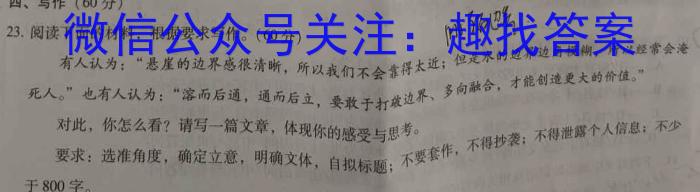 四、写作（60分）
23. 阅读下面的材料，根据要求写作。（60分）
微信公众号关注：趣找答案
有人认为：“悬崖的边界感很清晰，所以我们不会靠得太近；但是水的边界 经常会淹
死人。”也有人认为：“溶而后通，通而后立，要敢于打破边界、多向融合，才能创造更大的价值。”
对此，你怎么看？请写一篇文章，体现你的感受与思考。
要求：选准角度，确定立意，明确文体，自拟标题；不要套作，不得抄袭；不得泄露个人信息；不少
于800字。